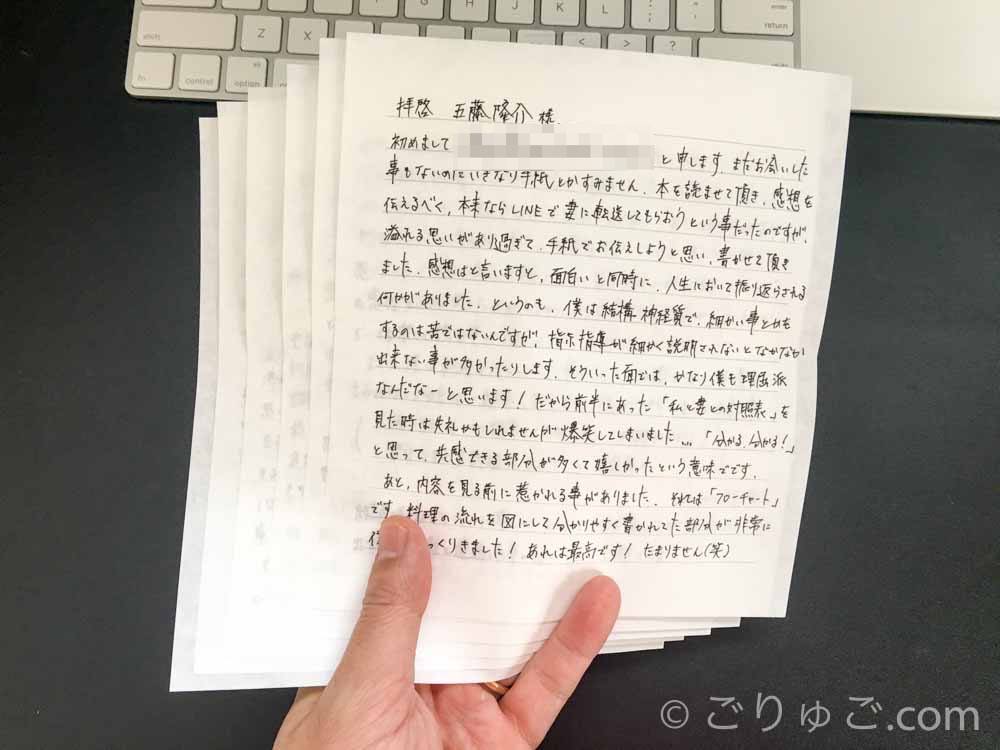 shift
Z
X
G
H
J
K
L
:
;
"
'
enter
return
<
,
>
.
?
/
shift
fn
control
option
拝啓 五藤隆介様
初めまして と申します。まだお会いした
事もないのにいきなり手紙とかすみません。本を読ませて頂き、感想を
伝えるべく、本来ならLINEで妻に転送してもらおうという事だったのですが、
溢れる思いがあり過ぎて、手紙でお伝えしようと思い、書かせて頂き
ました。感想はと言いますと、面白いと同時に、人生において振り返らされる
何かがありました。というのも、僕は結構神経質で、細かい事とかも
するのは苦ではないんですが、指示指導が細かく説明されないとなかなか
出来ない事が多かったりします。そういった面では、かなり僕も理屈派
なんだなーと思います!だから前半にあった「私と妻との対照表」を
見た時は失礼かもしれませんが爆笑してしまいました…「分かる、分かる!」
と思って、共感できる部分が多くて嬉しかったという意味でです。
あと、内容を見る前に惹かれる事がありました、それは「フローチャート」
です。料理の流れを図にして分かりやすく書かれてた部分が非常に
っくりきました!あれは最高です!たまりません(笑)
© ごりゅご.com